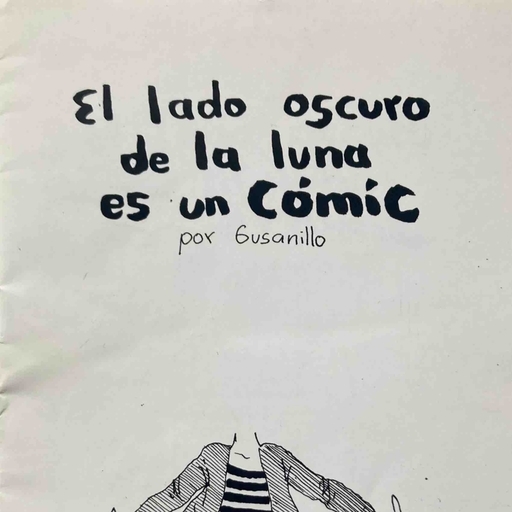 El lado oscuro
de la luna
es un Cómic
por Gusanillo